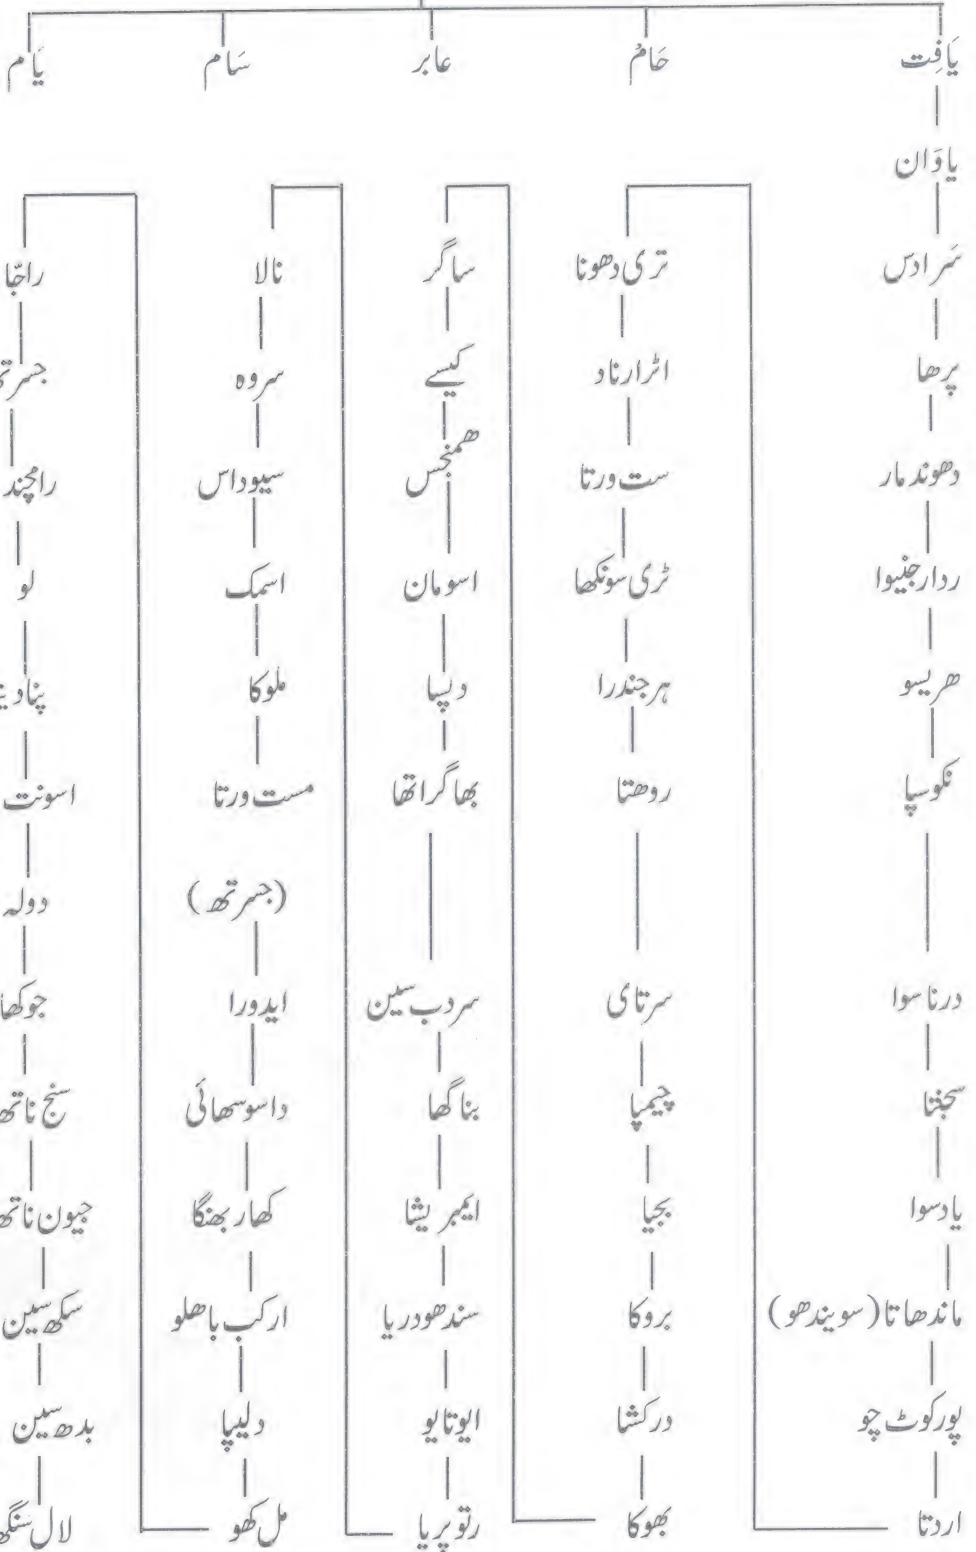 یَافِت
حَامْ
عابر
سَام
یَام
یاوَان
سَرادس
پرھا
دھوندمار
ردارجنیوا
ھریسو
نکوسپا
درناسوا
سجفتا
یادسوا
ماندھاتا (سویندھو)
پورکوٹ چو
اردتا
تری دھونا
اٹرارناد
ست ورتا
ٹری سونکھا
ہرجندرا
روھتا
سرتای
چیمپا
بجیا
بروکا
درکشا
بھوکا
ساگر
کیسے
ھمنجس
اسومان
دپسا
بھاگراتھا
سردب سین
بناگھا
ایمبریشا
سندھودریا
ایوتایو
رتوپریا
نالا
سروہ
سیوداس
اسمک
ملوکا
مست ورتا
(جسرتھ)
ایدورا
داسوسھائی
کھاربھنگا
ارکب باھلو
دلیپا
مل کھو
راجّا
جسرتھ
رامچند
لو
اسونت
دولہ
جوکھا
سنج ناتھ
جیون ناتھ
سکھ سین
بدھ سین
لال سَنگھ